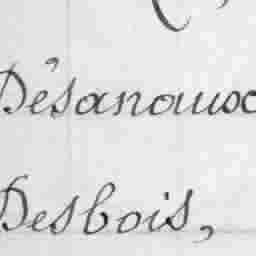 Désanoux
Desbois,